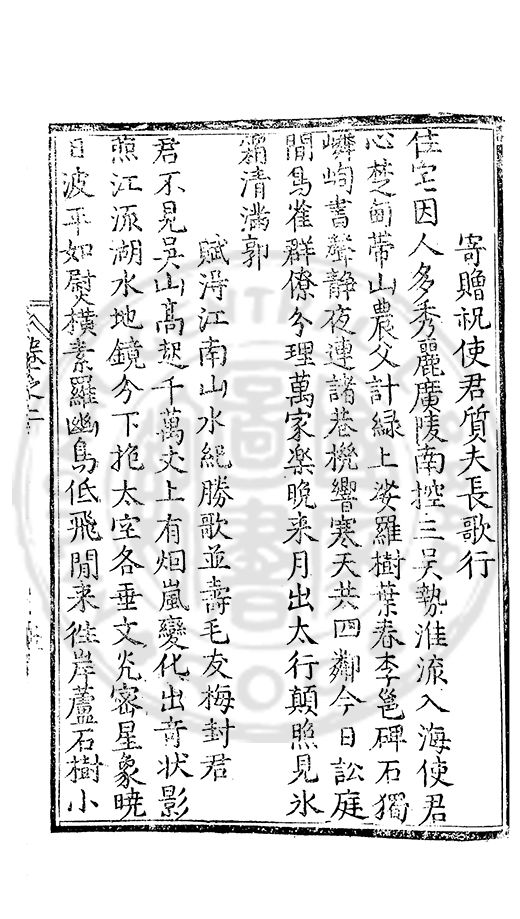 寄贈祝使君質夫長歌行
佳宅因人多秀麗廣陵南控三吳勢淮流入海使君
心楚甸帶山農父計緑上娑羅樹葉春李邕碑石獨
嶙峋書聲靜夜連諸巷桡響寒天共四鄰今日訟庭
間鳥雀群僚分理萬家楽晚来月出太行顛照見氷
霜清滿郭
賦淂江南山水絶勝歌並壽毛友梅封君
君不見吳山髙起千萬丈上有烟嵐變化出竒状影
蘸江流湖水地鏡分下抱太室各垂文光密星象曉
日波平如熨横素羅幽鳥低飛閒来徃岸蘆石樹小